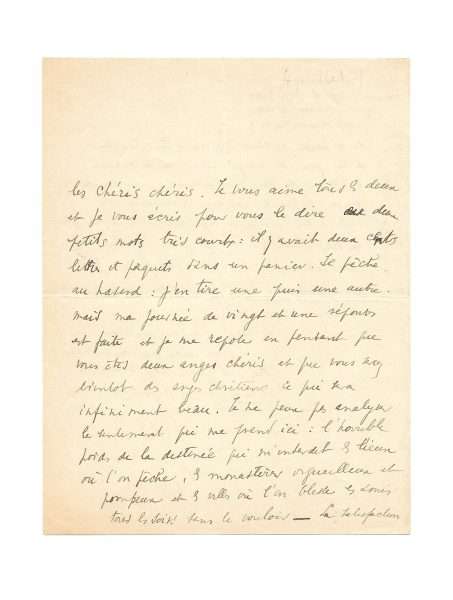 les chéris chéris. Je vous aime tous les deux
et je vous écris pour vous le dire deux
petits mots très courts : il y avait deux cents
lettres et paquets dans un panier. Je pêche
au hasard : j'en tire une puis une autre.
mais ma journée de vingt et une réponses
est faite et je me repose en pensant que
vous êtes deux anges chéris et que vous
bientôt des anges chrétiens ce qui sera
infiniment beau. Je ne peux pas analyser
le sentiment qui me prend ici : l'horrible
poids de la destinée qui m'interdit les lieux
où l'on pêche, les monastères orgueilleux et
pompeux et les villes où l'on blesse les amis
tous les soirs sans le vouloir — La satisfaction